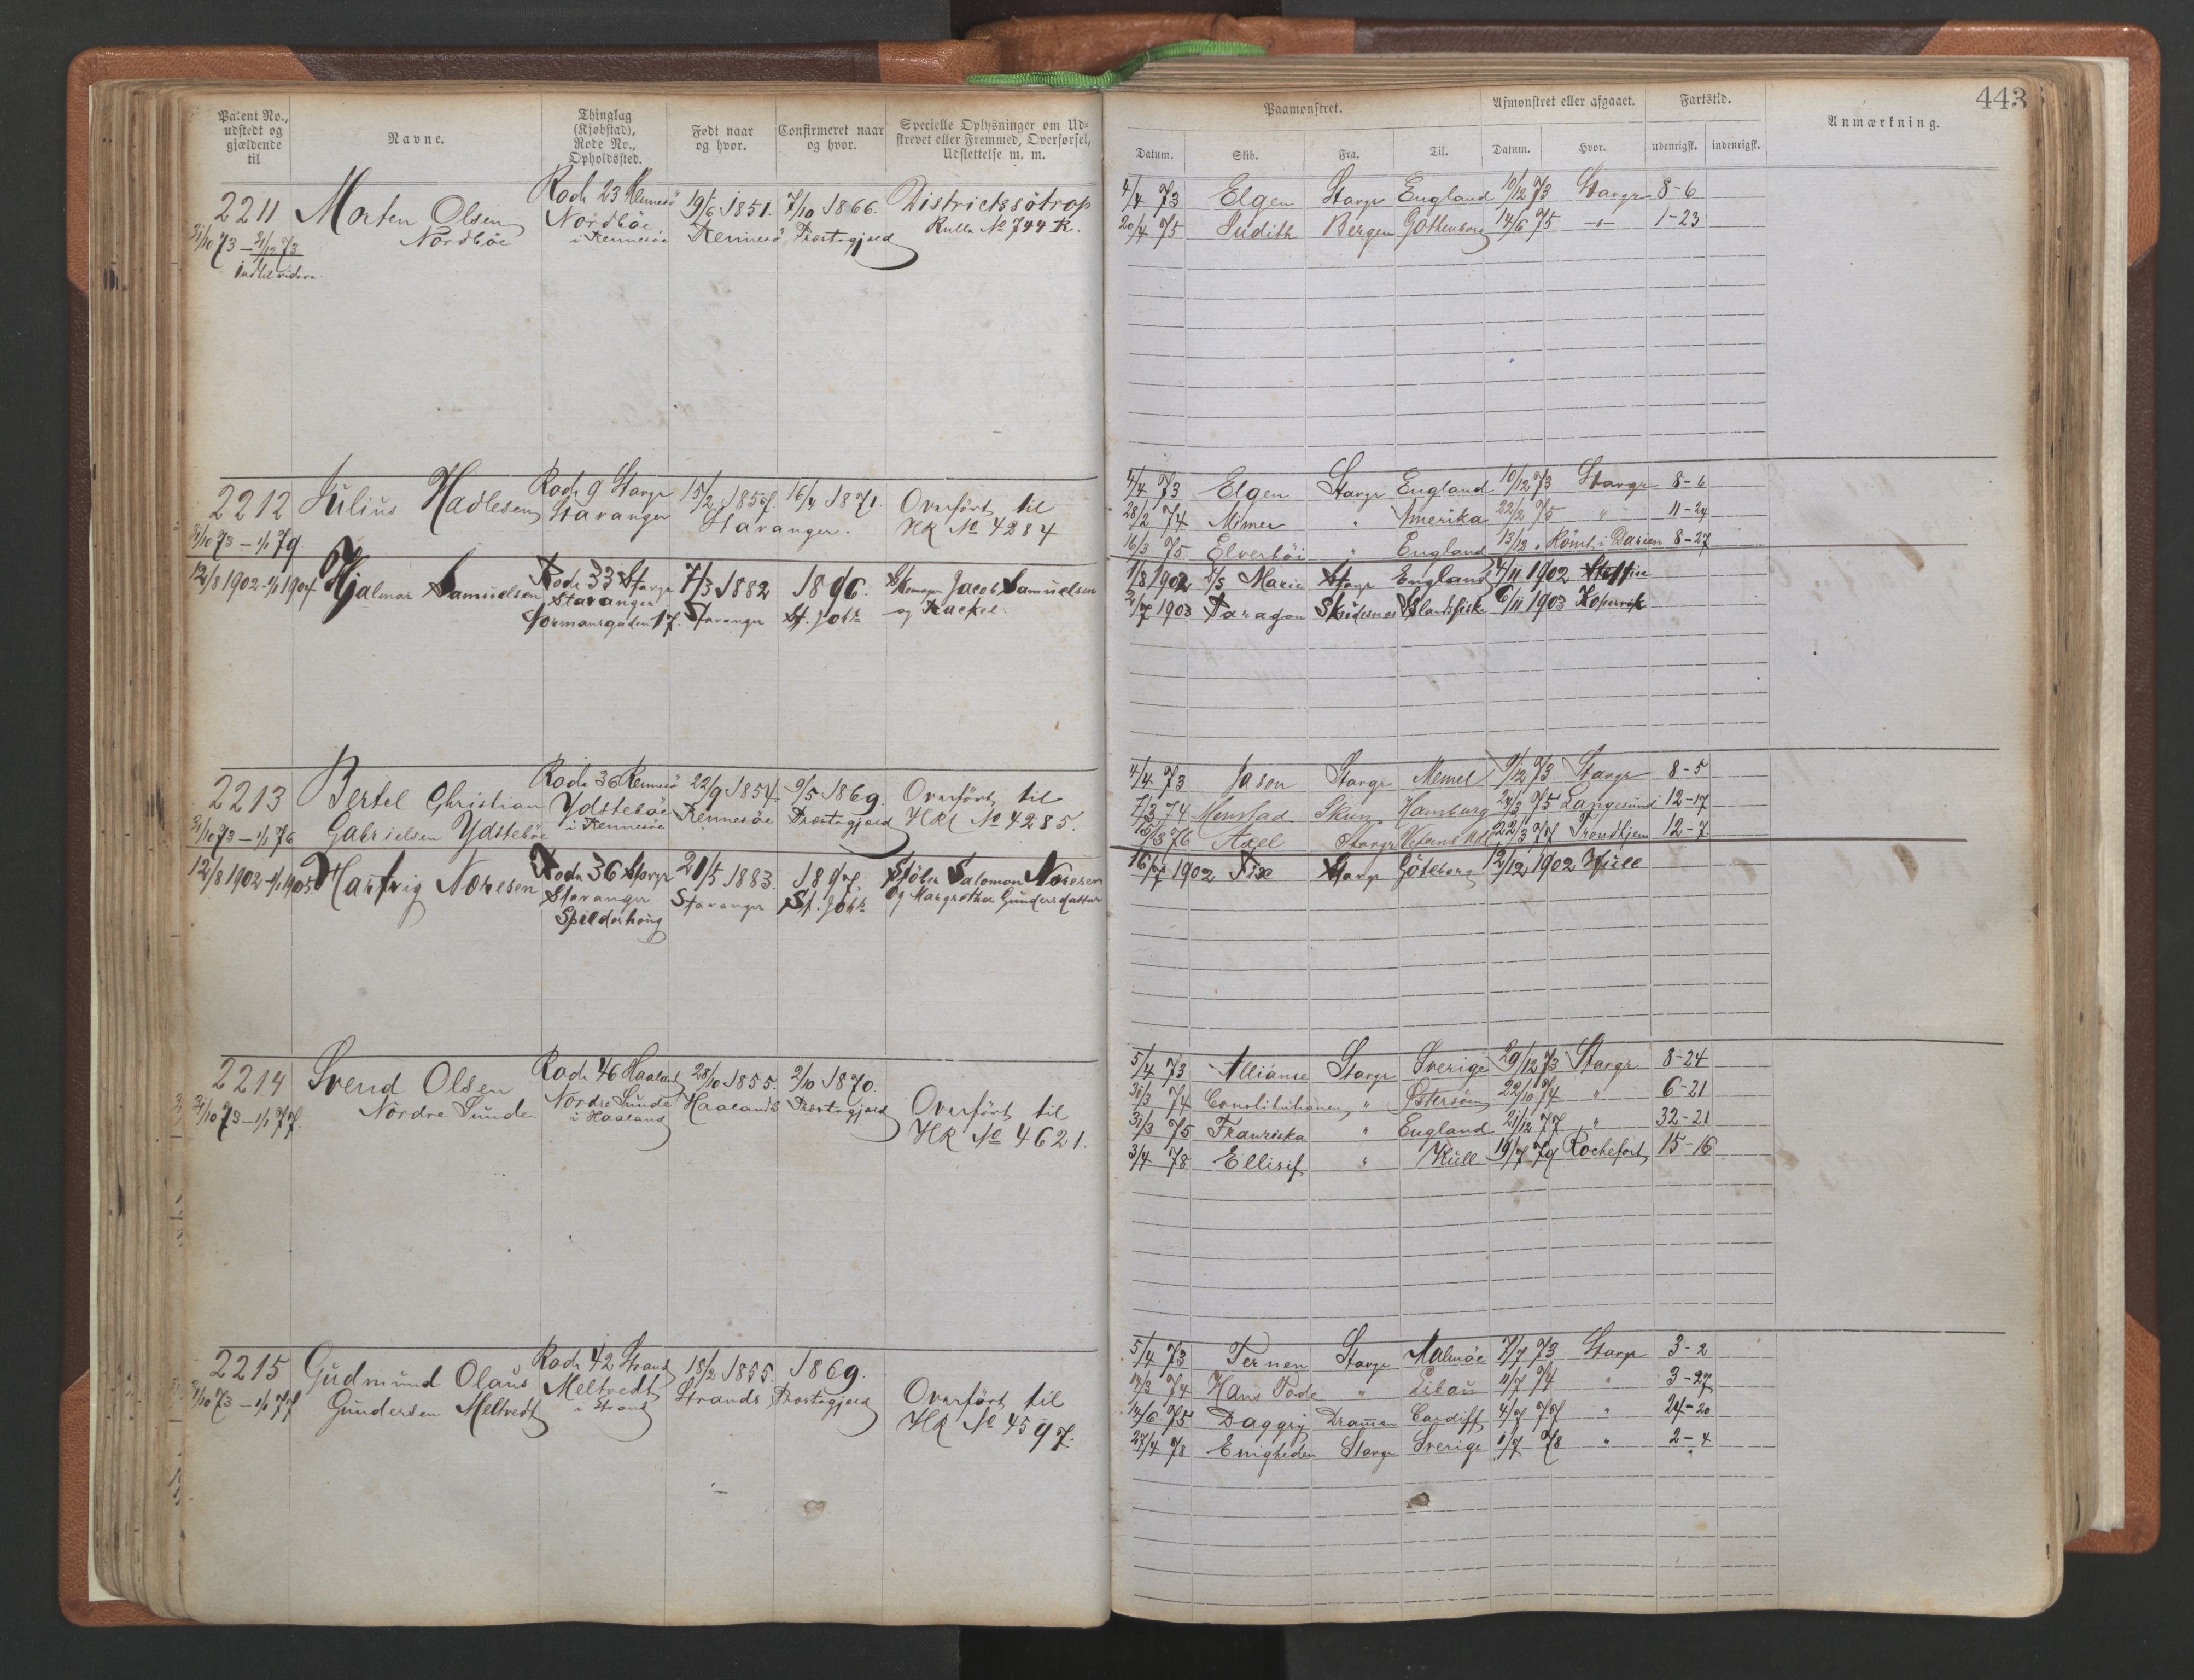 443
Patent No., udstedt og gjældende til
Navne.
Thinglag (Kjøbstad), Rode No., Opholdssted.
Født naar og hvor.
Confirmeret naar og hvor.
Specielle Oplysninger om Udskrevet eller Fremmed, Overførsel, Udslettelse m. m.
Paamønstret.
Afmønstret eller afgaaet.
Fartstid.
Anmærkning.
Datum. Skib. Fra. Til. Datum. Hvor. udenrigsk. indenrigsk.
2211 Morten Olsen Rode 23 Rennesö 19/6 1851. 7/10 1866. Districtssötrop
Nordböe Nordböe Rennesö Præstegjæld Rulle No 744 R.
31/10 73 – 31/12 73 i Rennesöe
Indtil videre
4/4 73 Elgen Stavgr England 10/12 73 Stavgr 8-6
20/4 75 Judith Bergen Gothenborg 14/6 75 -"- 1-23
2212 Julius Hadlesen Rode 9 Stavgr 15/2 1857. 16/4 1871. Overfört til
31/10 73 – 1/1 79. Stavanger Stavanger. HR No 4284
4/4 73 Elgen Stavgr England 10/12 73 Stavgr 8-6
28/2 74 Mimer " Amerika 22/2 75 " 11-24
16/3 75 Elvestöi " England 13/12 " Römt i Darien 8-27
12/8 1902 - 1/1 1904 Hjalmar Samuelsen Rode 33 Stavgr 7/3 1882 1896. Jacob Samuelsen
Stavanger Stavanger St. Joh. og Rackel.
Normansgaden 17.
1/8 1902 D/S Marie Stavgr England 4/11 1902 Stettin
2/7 1903 Paragon Skudesnes Islandsfiske 6/11 1903 Kopervik
2213 Bertel Christian Rode 36 Rennesö 22/9 1854. 9/5 1869. Overfört til
31/10 73 – 1/1 76 Gabrielsen Ydsteböe Ydsteböe i Rennesöe Rennesöe Præstegjæld HR No 4285.
4/4 73 Jason Stavgr Memel 9/12 73 Stavgr 8-5
7/3 74 Menstad Skien Hamburg 24/3 75 Langesund 12-17
13/3 76 Axel Stavgr 22/3 77 Trondhjem 12-7
12/8 1902 - 1/1 1905 Hartvig Noresen Rode 36 Stavgr 21/5 1883. 1897. Salomon Noresen
Stavanger Stavanger St. Joh. og Margretha Gundersdatter
Spilderhaug
16/7 1902 Fix Stavgr Göteborg 12/12 1902 Hull
2214 Svend Olsen Rode 46 Haaland 28/10 1855. 2/10 1870. Overfört til
31/10 73 – 1/1 77. Nordre Sunde Nordre Sunde i Haaland Haalands Præstegjæld HR No 4621.
5/4 73 Alliance Stavgr Sverige 29/12 73 Stavgr 8-24
31/3 74 Constitutionen " Östersöen 22/10 74 " 6-21
31/3 75 Franziska " England 21/12 77 " 32-21
3/4 78 Ellisif " Hull 19/7 79 Rochefort 15-16
2215 Gudmund Olaus Rode 42 Strand 18/2 1855. 1869. Overfört til
31/10 73 – 1/1 77 Gundersen Meltvedt Meltvedt i Strand Strands Præstegjæld HR No 4597.
5/4 73 Ternen Stavgr Malmöe 7/7 73 Stavgr 3-2
14/3 74 Hans Tode " Libau 11/7 74 " 3-27
14/6 75 Daggry Dramen Cardiff 4/7 77 " 24-20
27/4 78 Enigheden Stavgr Sverige 1/7 78 " 2-4